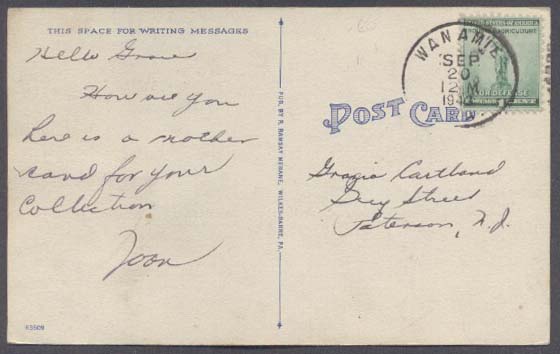 THIS SPACE FOR WRITING MESSAGES
Hello Grace
How are you
here is a nother
card for your
Collection
Joan
63509
PUB. BY R. RAMSAY MEBANE, WILKES-BARRE, PA.
POST CARD
WANAMIE
SEP
20
12 M
UNITED STATES OF AMERICA
INDUSTRY AGRICULTURE
FOR DEFENSE
Gracie Cartland
Grey Street
Paterson, N.J.